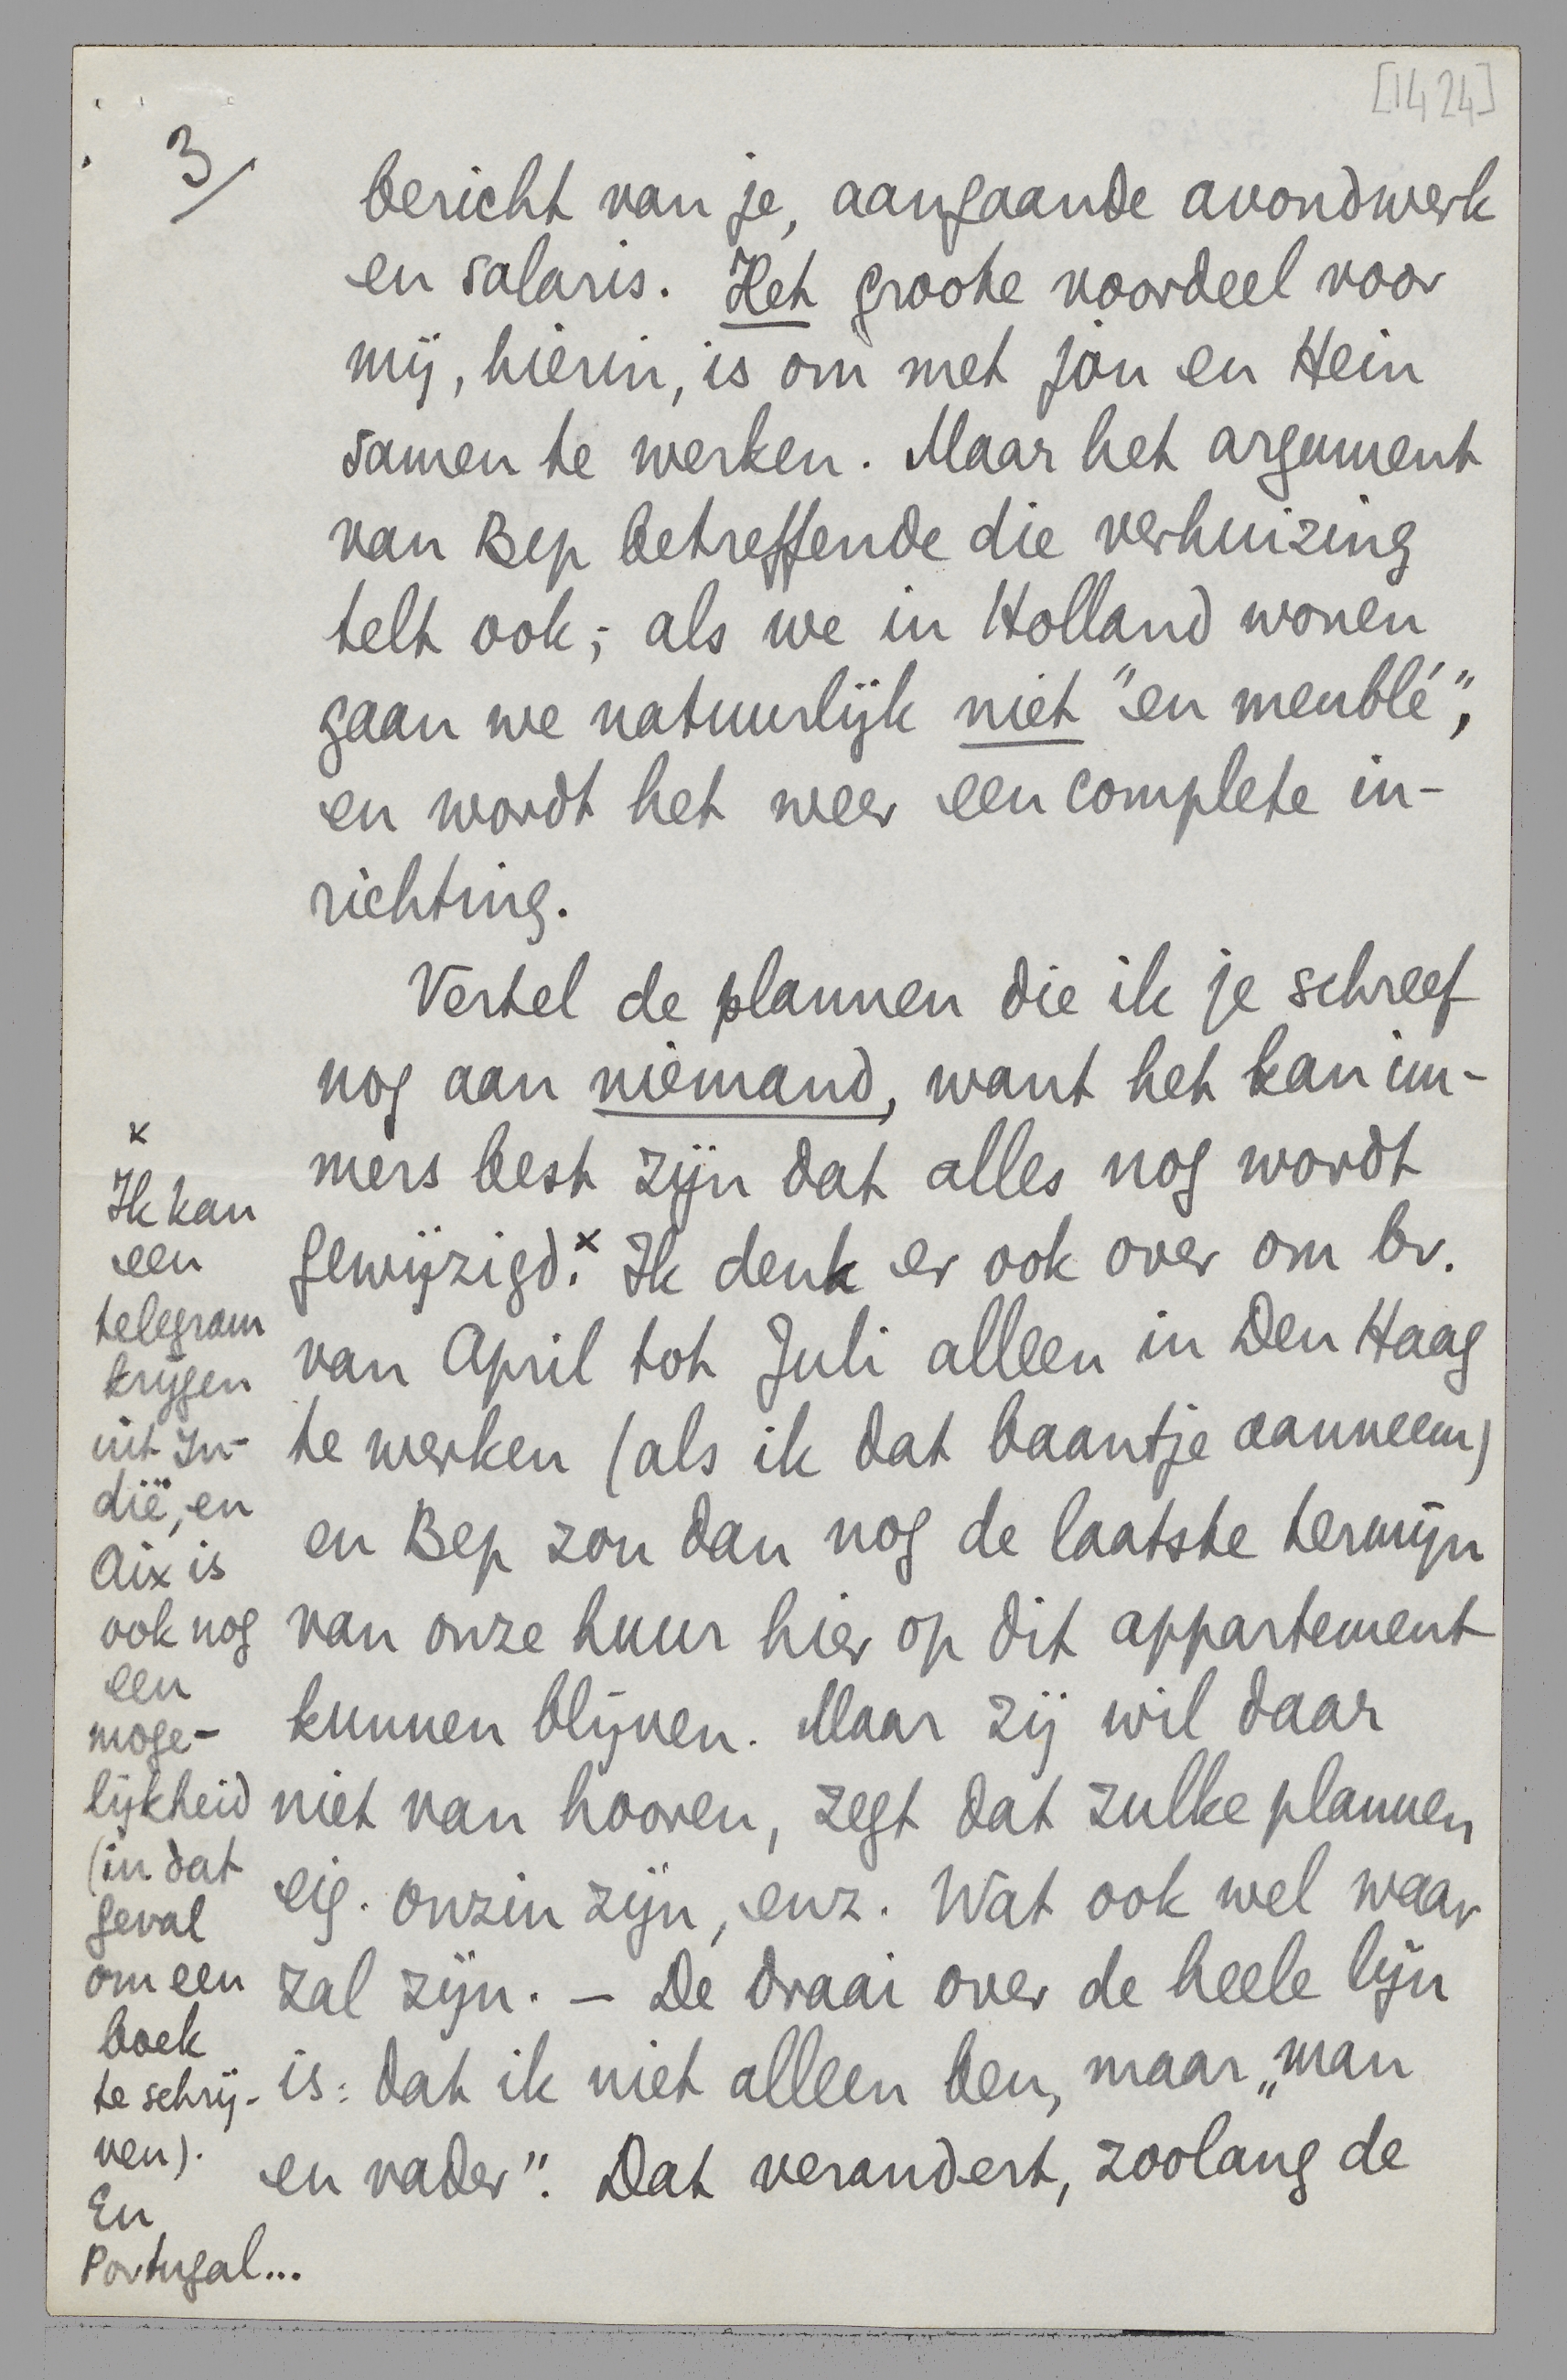 [1424]
3/
bericht van je, aangaande avondwerk
en salaris. Het groote voordeel voor
mij, hierin, is om met jou en Hein
samen te werken. Maar het argument
van Bep betreffende die verhuizing
telt ook; als we in Holland wonen
gaan we natuurlijk niet "en meublé",
en wordt het weer een complete in-
richting.
Vertel de plannen die ik je schreef
nog aan niemand, want het kan im-
mers best zijn dat alles nog wordt
gewijzigd.x Ik denk er ook over om bv.
van April tot Juli alleen in Den Haag
te werken (als ik dat baantje aanneem)
en Bep zou dan nog de laatste termijn
van onze huur hier op dit appartement
kunnen blijven. Maar zij wil daar
niet van hooren, zegt dat zulke plannen
eig. onzin zijn, enz. Wat ook wel waar
zal zijn. — De draai over de heele lijn
is: dat ik niet alleen ben, maar „man
en vader". Dat verandert, zoolang de
x
Ik kan
een
telegram
krijgen
uit In-
dië, en
Aix is
ook nog
een
moge-
lijkheid
(in dat
geval
om een
boek
te schrij-
ven).
En
Portugal...